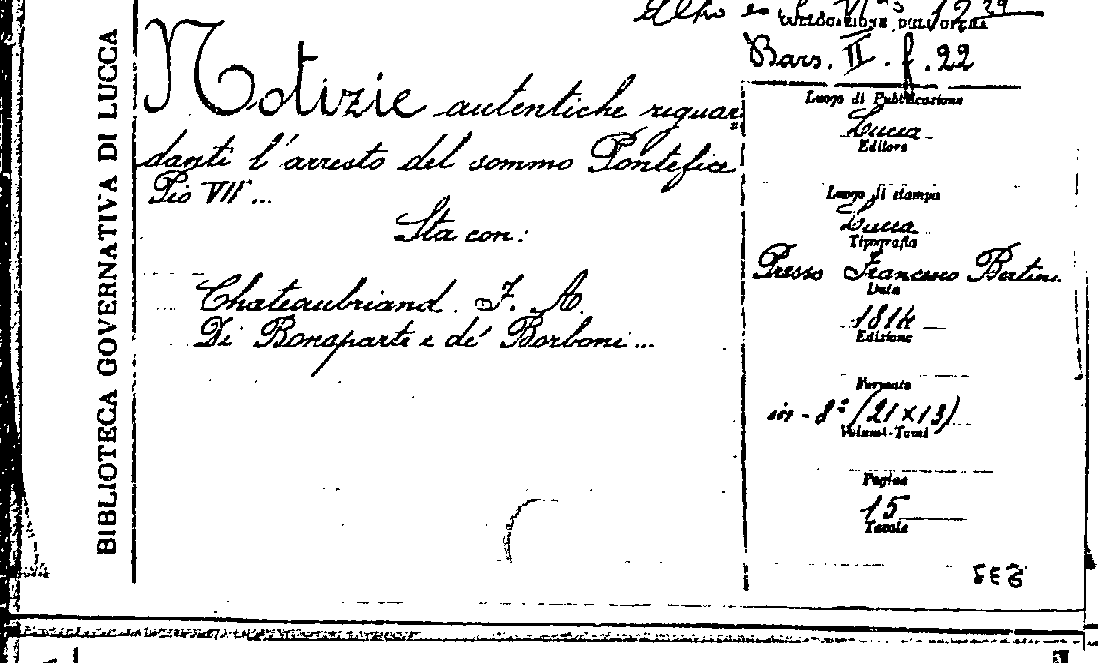 BIBLIOTECA GOVERNATIVA DI LUCCA
Notizie autentiche riguar=
danti l'arresto del sommo Pontefice
Pio VII...
Sta con:
Chateaubriand F. A.
Di Bonaparte e de' Borboni...
COLLOCAZIONE DELL'OPERA
Bars. II. f. 22
Luogo di Pubblicazione
Lucca
Editore
Luogo di stampa
Lucca
Tipografia
Presso Francesco Bertini
Data
1814
Edizione
Formato
in-8º (21×13)
Volumi-Tomi
Pagine
15
Tavole